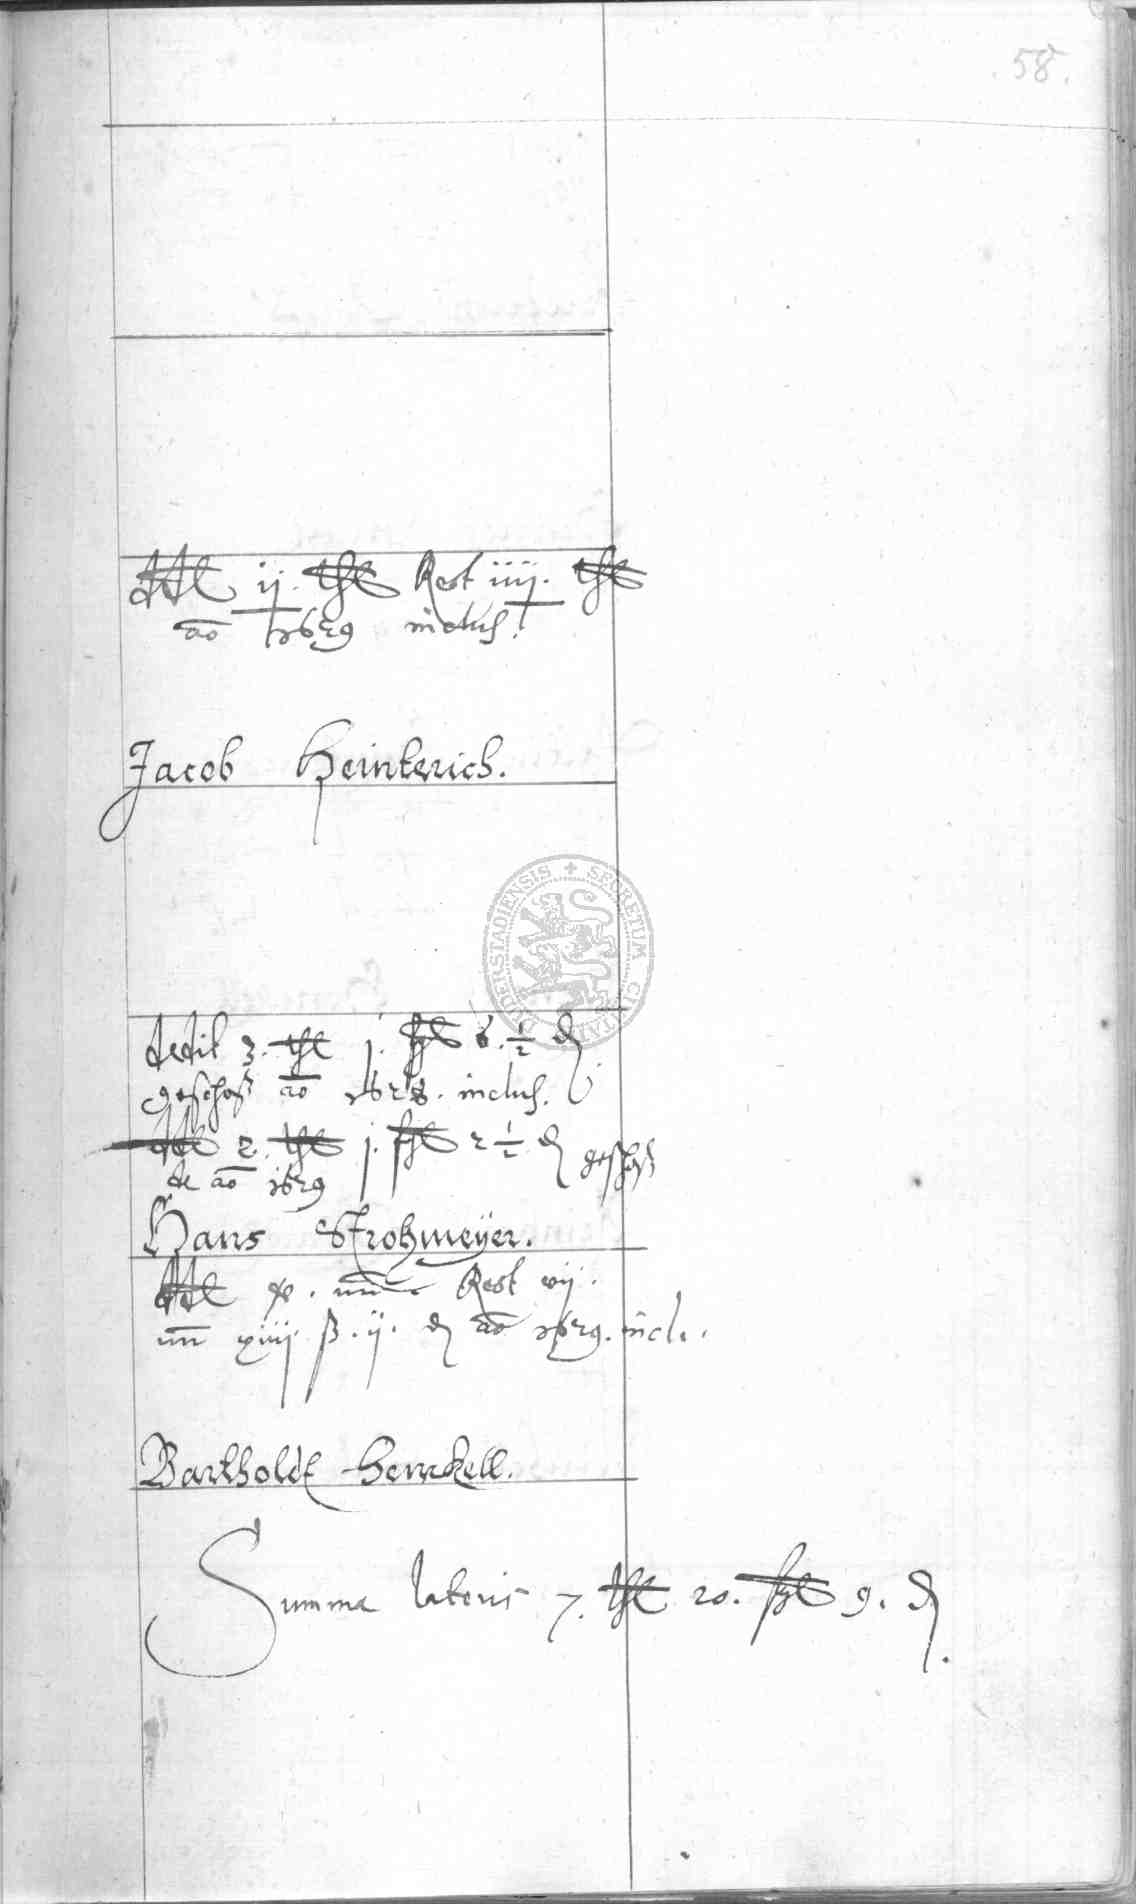 58.
dedit ij. thl Rest iiij. thl
ao 1629 inclus.
Jacob Heinterich.
dedit 3. thl j. ßl 6. ½ ₰
geschoß ao 1628. inclus.
dedit 2. thl j. ßl 2 ½ ₰ geschoß
de ao 1629
Hans Strohmeÿer.
dedit x. mr Rest vij.
mr xiiij. ß. ij. ₰ ao 1629. incl.
Bartholdt Henckell.
Summa lateris 7. thl 20. ßl 9. ₰.
SECRETUM CIVITATIS DUDERSTADIENSIS